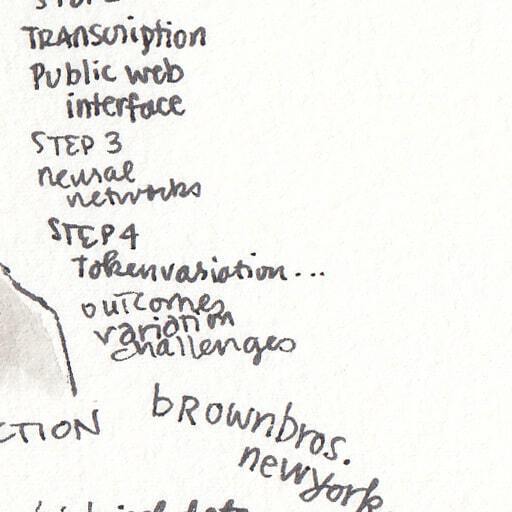 STEP 2
TRANSCRIPTION
Public web
interface
STEP 3
neural
networks
STEP 4
Token variation...
outcomes
variation
challenges
CTION
BROWN bros.
new york